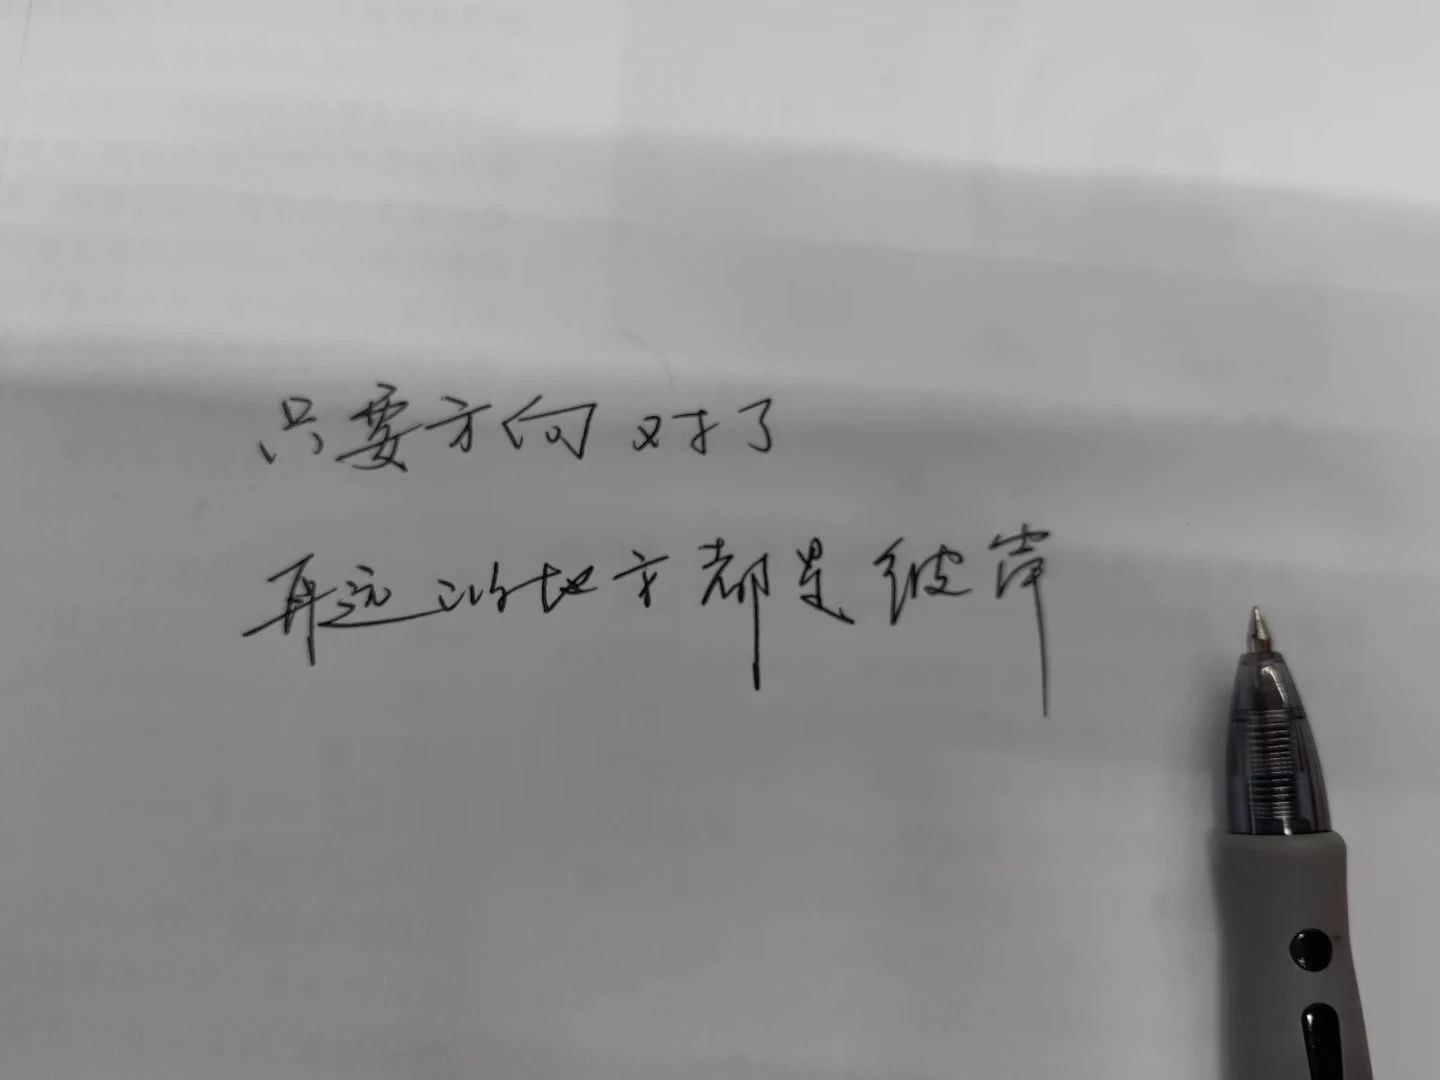 只要方向对了
再远的地方都是彼岸